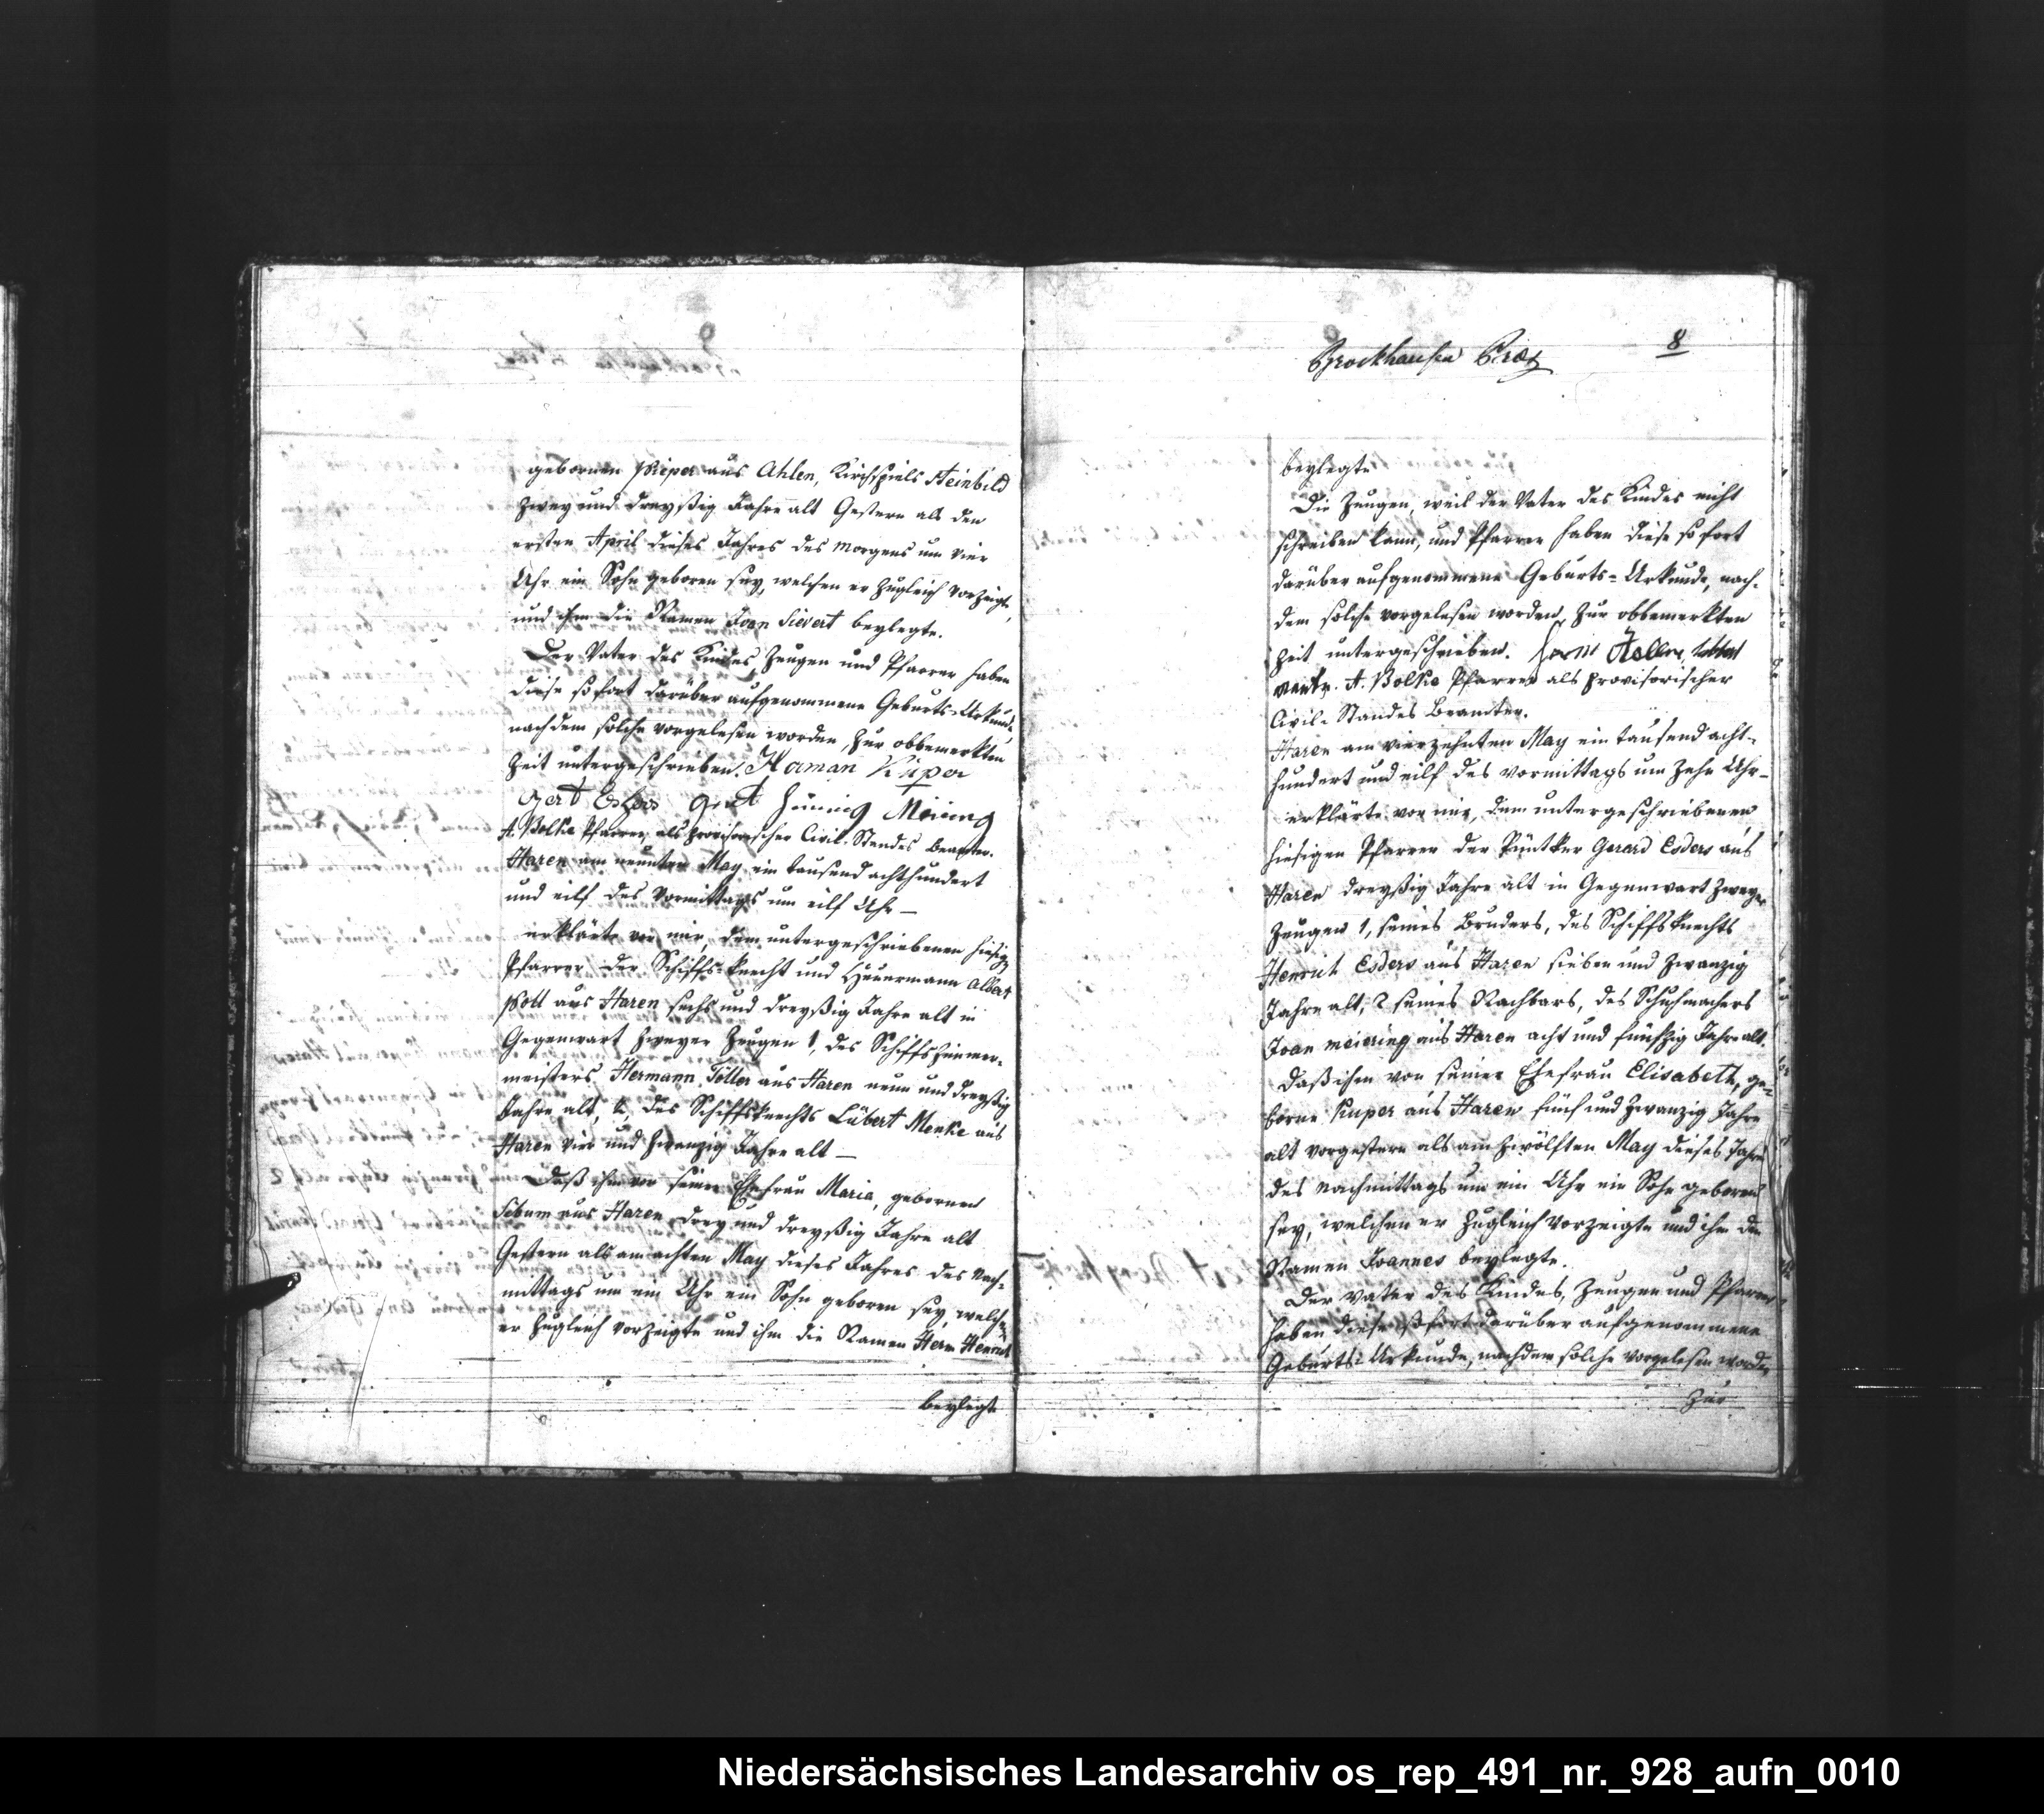 gebornen Pieper aus Ahlen, Kirchspiels Steinbild
zwey und dreyßig Jahre alt Gestern als den
ersten April dieses Jahres des Morgens um vier
Uhr ein Sohn geboren sey, welchen er zugleich vorzeigte,
und ihm die Namen Joan Sievert beylegte.
Der Vater des Kindes, Zeugen und Pfarrer haben
diese sofort darüber aufgenommene Geburts-Urkunde
nachdem solche vorgelesen worden, zur obbemerkten
Zeit untergeschrieben. Herman Küper
Gert Gert Meiring
A. Bolke Pfarrer, als provisorischer Civil-Standes Beamter.
Haren am neunten May ein tausend achthundert
und eilf des Vormittags um eilf Uhr —
erklärte vor mir, dem untergeschriebenen hiesigen
Pfarrer der Schiffs-knecht und Heuermann Albert
Pott aus Haren sechs und dreyßig Jahre alt in
Gegenwart zweyer Zeugen 1, des Schiffszimmer-
meisters Hermann Töller aus Haren neun und dreyßig
Jahre alt, 2, des Schiffsknechts Lübert Menke aus
Haren vier und zwanzig Jahre alt —
Daß ihm von seiner Ehefrau Maria, gebornen
Sibum aus Haren drey und dreyßig Jahre alt
Gestern als am achten May dieses Jahres des Nach-
mittags um ein Uhr ein Sohn geboren sey, welchen
er zugleich vorzeigte und ihm die Namen Herm Henrich
beylegte
Brockhausen 8
beylegte
Die Zeugen, weil der Vater des Kindes nicht
schreiben kann, und Pfarrer haben diese sofort
darüber aufgenommene Geburts-Urkunde, nach-
dem solche vorgelesen worden, zur obbemerkten
Zeit untergeschrieben.
A. Bolke Pfarrer als provisorischer
Civil-Standes Beamter.
Haren am vierzehnten May ein tausend acht-
hundert und eilf des Vormittags um zehn Uhr —
erklärte vor mir, dem untergeschriebenen
hiesigen Pfarrer der Püntker Gerard Esders aus
Haren dreyßig Jahre alt in Gegenwart zweyer
Zeugen 1, seines Bruders, des Schiffsknechts
Henrich Esders aus Haren sieben und zwanzig
Jahre alt, 2 seines Nachbars, des Schuhmachers
Joan Meiering aus Haren acht und fünfzig Jahre alt.
Daß ihm von seiner Ehefrau Elisabeth, ge-
borne Kuper aus Haren fünf und zwanzig Jahre
alt vorgestern als am zwölften May dieses Jahres
des Nachmittags um ein Uhr ein Sohn geboren
sey, welchen er zugleich vorzeigte und ihm den
Namen Joannes beylegte.
Der Vater des Kindes, Zeugen und Pfarrer
haben diese sofort darüber aufgenommene
Geburts-Urkunde, nachdem solche vorgelesen worden,
zur
Niedersächsisches Landesarchiv os_rep_491_nr._928_aufn_0010